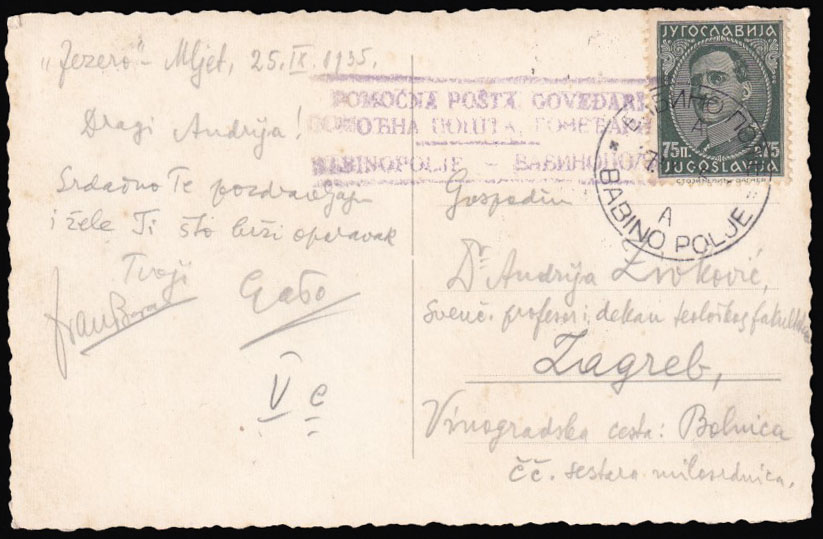 "Jezero" - Mljet, 25. IX. 1935.
Dragi Andrija!
Srdačno Te pozdravljaju
i žele Ti što brži oporavak
Tvoji
Gabo
V c
POMOĆNA POŠTA, GOVEĐARI
ПОМОЋНА ПОШТА, ГОВЕЂАРИ
BABINOPOLJE - БАБИНОПОЉЕ
ЈУГОСЛАВИЈА
75П. 75
JUGOSLAVIJA
БАБИНО ПОЉЕ
A
A
BABINO POLJE
Gospodin
Dr Andrija Živković,
sveuč. profesor i dekan teološkog fakulteta
Zagreb,
Vinogradska cesta: Bolnica
čč. sestara milosrdnica.